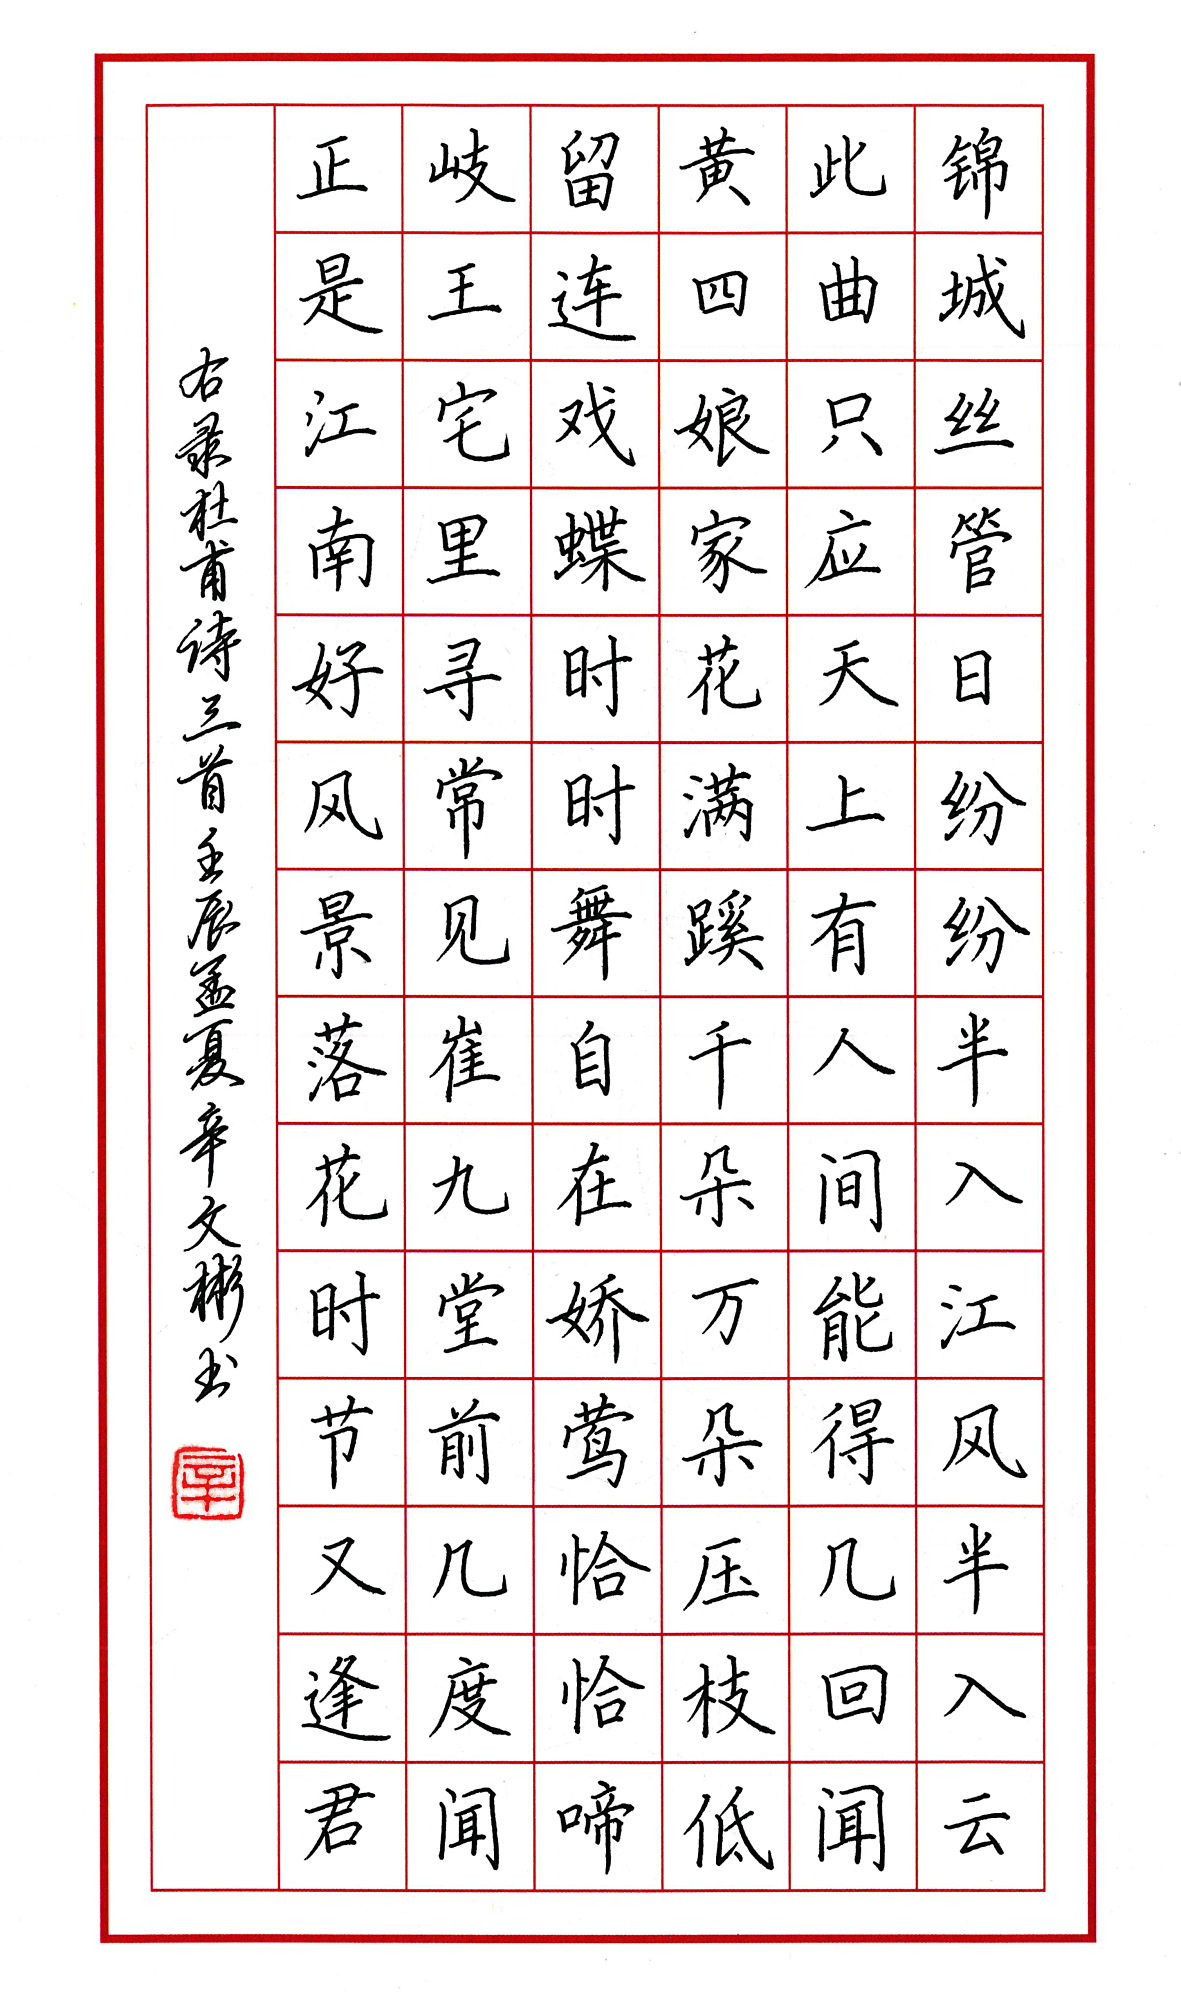 锦城丝管日纷纷半入江风半入云
此曲只应天上有人间能得几回闻
黄四娘家花满蹊千朵万朵压枝低
留连戏蝶时时舞自在娇莺恰恰啼
岐王宅里寻常见崔九堂前几度闻
正是江南好风景落花时节又逢君
右录杜甫诗三首壬辰孟夏辛文彬书
辛